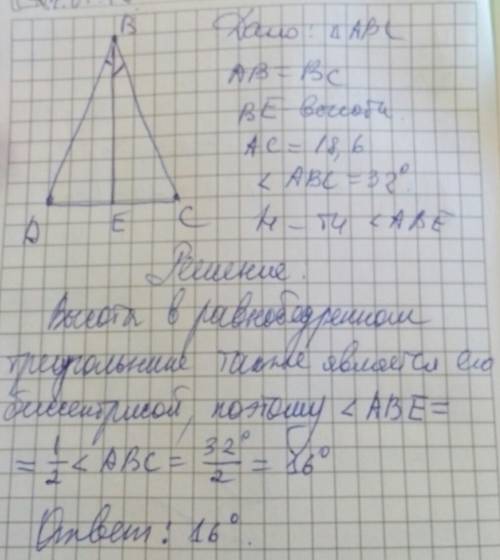 B
Дано: △ABC
AB = BC
BE высота
AC = 18,6
< ABC = 32°
Н-ти < ABE
D E C
Решение.
Высота в равнобедренном
треугольнике также является его
биссектрисой, поэтому < ABE =
= 1/2 < ABC = 32°/2 = 16°
Ответ: 16°.